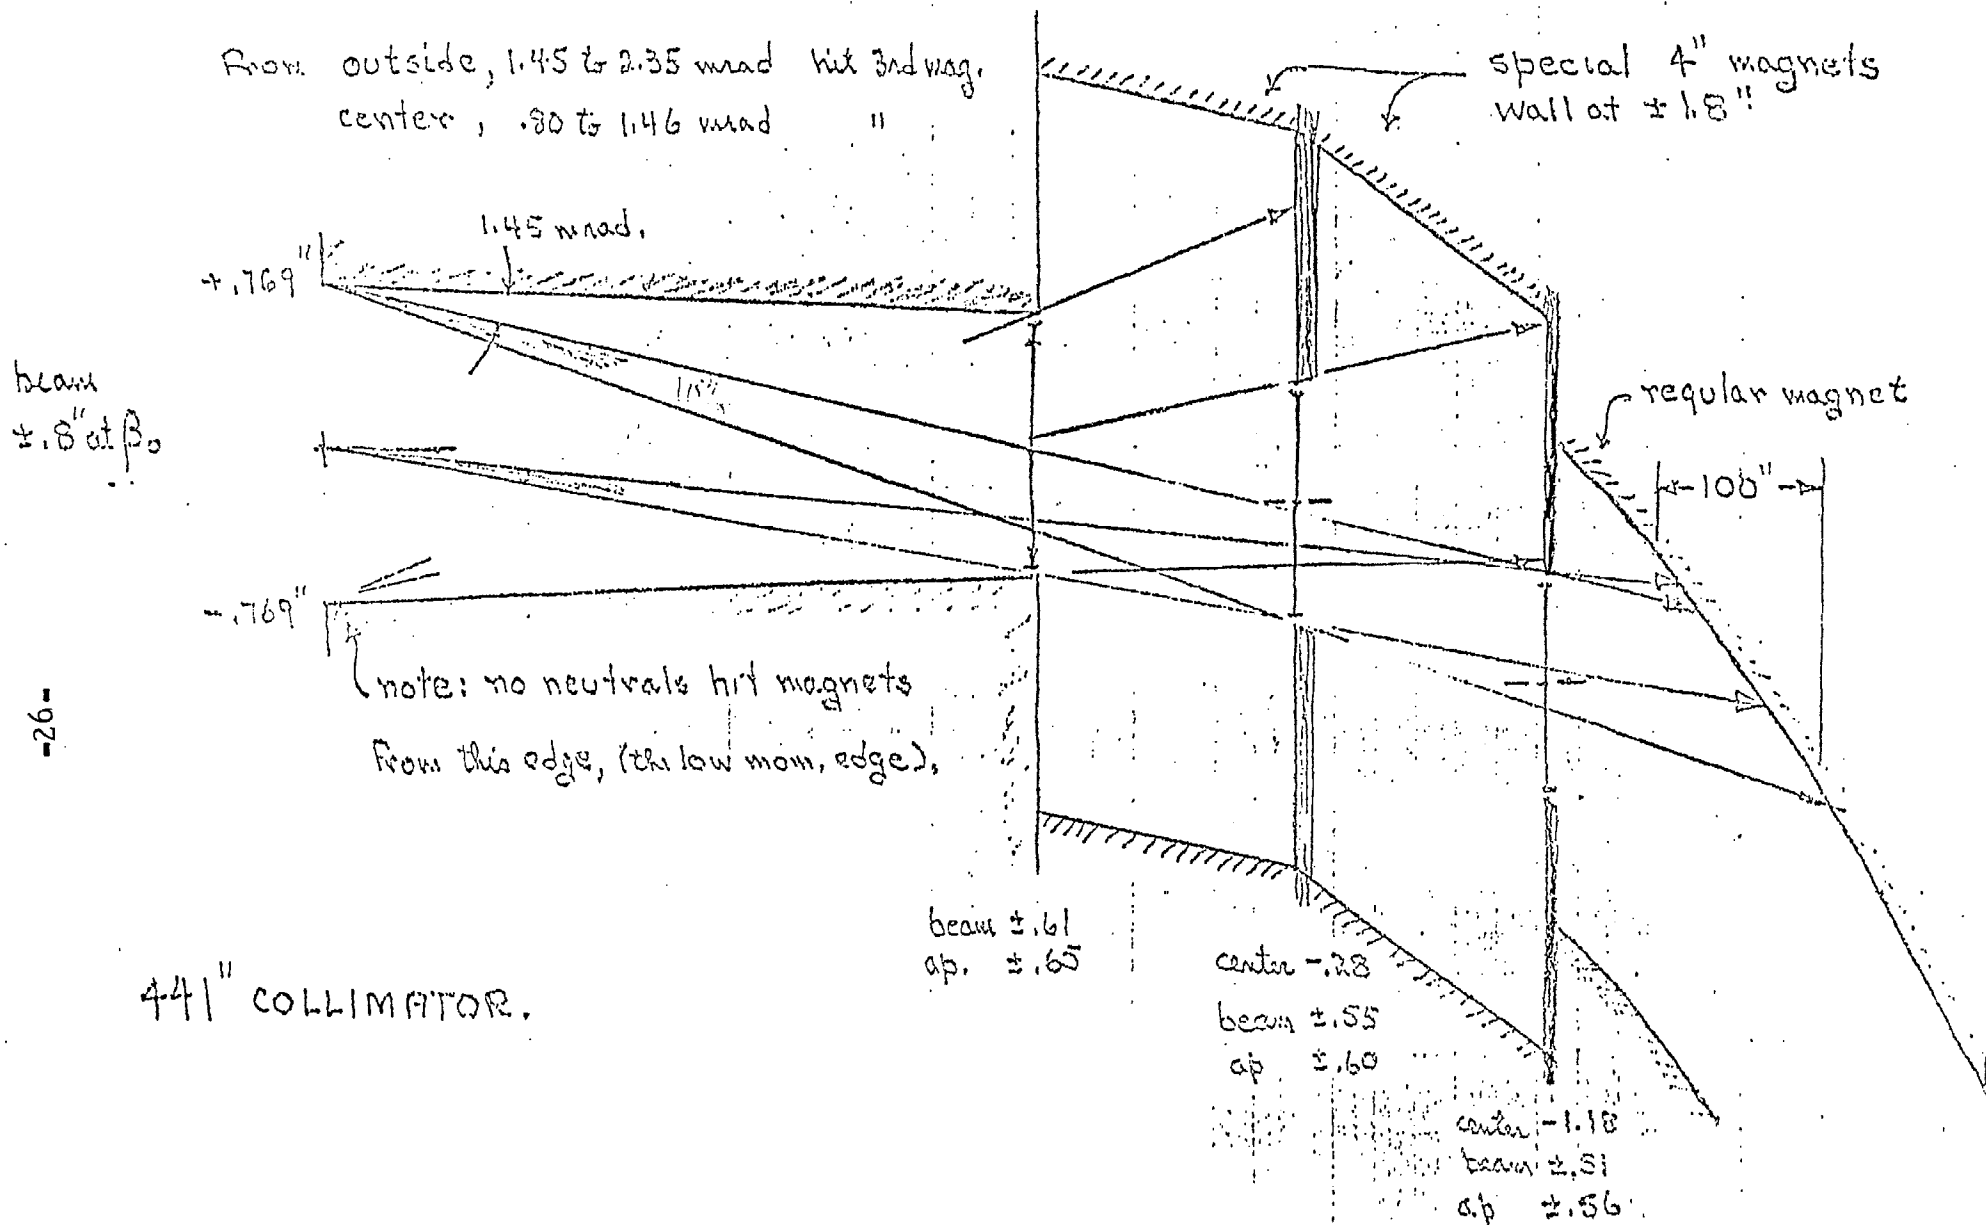 From outside, 1.45 to 2.35 mrad hit 3rd mag.
center, .80 to 1.46 mrad "
special 4" magnets
wall at ± 1.8"
1.45 mrad.
+.769"
beam
±.8" at β₀
regular magnet
100"
-.769"
note: no neutrals hit magnets
from this edge, (the low mom. edge).
-26-
beam ±.61
ap. ±.65
center -.28
beam ±.55
ap ±.60
441" COLLIMATOR.
center -1.18
beam ±.51
ap ±.56